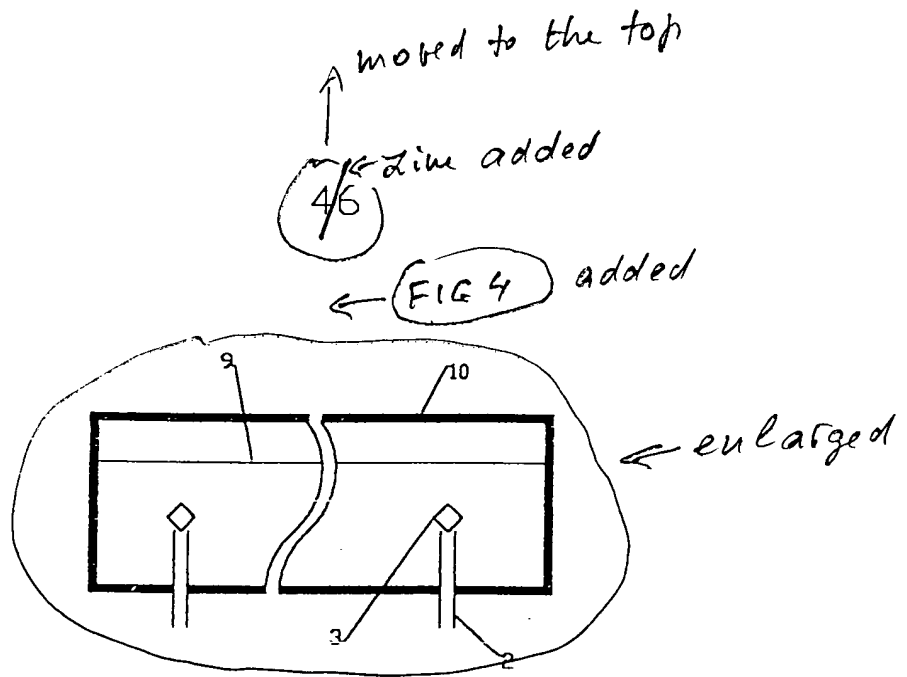 moved to the top
Line added
4/6
FIG 4 added
9 10
enlarged
3
2